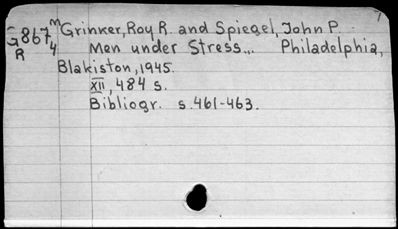 G867m Grinker, Roy R. and Spiegel, John P.
R 4 Men under Stress... Philadelphia,
Blakiston, 1945.
XII, 484 s.
Bibliogr. s. 461-463.